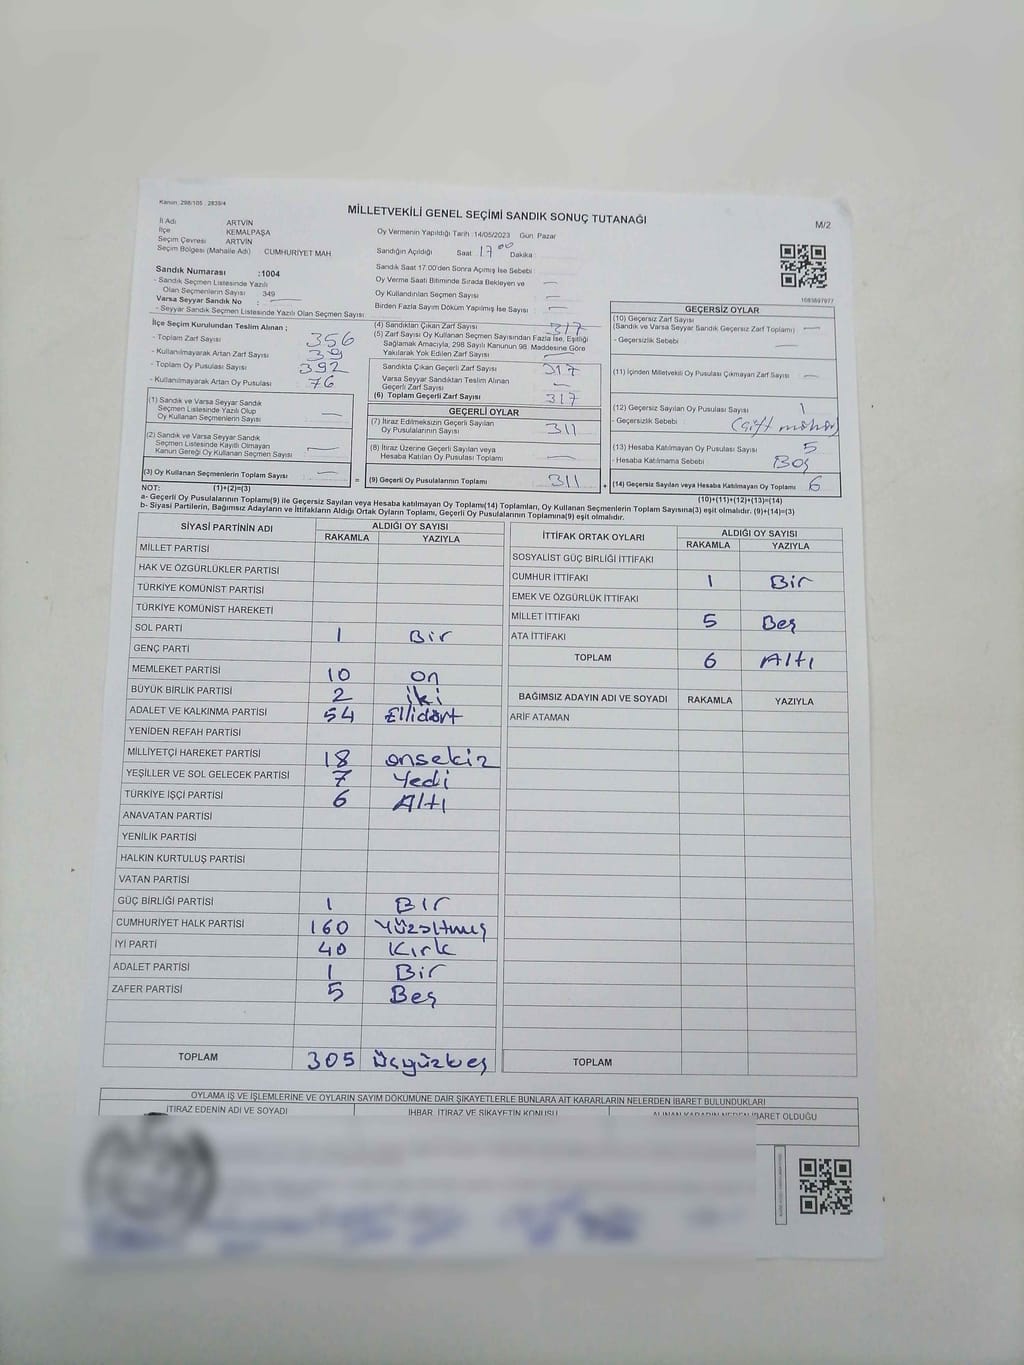 Kanun: 298/105 : 2839/4
MİLLETVEKİLİ GENEL SEÇİMİ SANDIK SONUÇ TUTANAĞI
M/2
İl Adı ARTVİN
İlçe KEMALPAŞA
Seçim Çevresi ARTVİN
Seçim Bölgesi (Mahalle Adı) CUMHURİYET MAH
Sandık Numarası :1004
- Sandık Seçmen Listesinde Yazılı
Olan Seçmenlerin Sayısı 349
Varsa Seyyar Sandık No :
- Seyyar Sandık Seçmen Listesinde Yazılı Olan Seçmen Sayısı
Oy Vermenin Yapıldığı Tarih :14/05/2023 Gün Pazar
Sandığın Açıldığı Saat 17 00 Dakika
Sandık Saat 17.00'den Sonra Açılmış İse Sebebi
Oy Verme Saati Bitiminde Sırada Bekleyen ve
Oy Kullandırılan Seçmen Sayısı
Birden Fazla Sayım Döküm Yapılmış İse Sayısı
1083897977
İlçe Seçim Kurulundan Teslim Alınan ;
- Toplam Zarf Sayısı 356
- Kullanılmayarak Artan Zarf Sayısı 39
- Toplam Oy Pusulası Sayısı 392
- Kullanılmayarak Artan Oy Pusulası 76
(1) Sandık ve Varsa Seyyar Sandık
Seçmen Listesinde Yazılı Olup
Oy Kullanan Seçmenlerin Sayısı
(2) Sandık ve Varsa Seyyar Sandık
Seçmen Listesinde Kayıtlı Olmayan
Kanun Gereği Oy Kullanan Seçmen Sayısı
(3) Oy Kullanan Seçmenlerin Toplam Sayısı
(4) Sandıktan Çıkan Zarf Sayısı 317
(5) Zarf Sayısı Oy Kullanan Seçmen Sayısından Fazla İse, Eşitliği
Sağlamak Amacıyla, 298 Sayılı Kanunun 98. Maddesine Göre
Yakılarak Yok Edilen Zarf Sayısı
Sandıkta Çıkan Geçerli Zarf Sayısı 317
Varsa Seyyar Sandıktan Teslim Alınan
Geçerli Zarf Sayısı
(6) Toplam Geçerli Zarf Sayısı 317
GEÇERLİ OYLAR
(7) İtiraz Edilmeksizin Geçerli Sayılan
Oy Pusulalarının Sayısı 311
(8) İtiraz Üzerine Geçerli Sayılan veya
Hesaba Katılan Oy Pusulası Toplamı
= (9) Geçerli Oy Pusulalarının Toplamı 311
GEÇERSİZ OYLAR
(10) Geçersiz Zarf Sayısı
(Sandık ve Varsa Seyyar Sandık Geçersiz Zarf Toplamı)
- Geçersizlik Sebebi
(11) İçinden Milletvekili Oy Pusulası Çıkmayan Zarf Sayısı
(12) Geçersiz Sayılan Oy Pusulası Sayısı 1
- Geçersizlik Sebebi (Çift mühür)
(13) Hesaba Katılmayan Oy Pusulası Sayısı 5
- Hesaba Katılmama Sebebi Boş
+ (14) Geçersiz Sayılan veya Hesaba Katılmayan Oy Toplamı 6
NOT: (1)+(2)=(3)
(10)+(11)+(12)+(13)=(14)
a- Geçerli Oy Pusulalarının Toplamı(9) ile Geçersiz Sayılan veya Hesaba katılmayan Oy Toplamı(14) Toplamları, Oy Kullanan Seçmenlerin Toplam Sayısına(3) eşit olmalıdır. (9)+(14)=(3)
b- Siyasi Partilerin, Bağımsız Adayların ve İttifakların Aldığı Ortak Oyların Toplamı, Geçerli Oy Pusulalarının Toplamına(9) eşit olmalıdır.
SİYASİ PARTİNİN ADI ALDIĞI OY SAYISI
RAKAMLA YAZIYLA
MİLLET PARTİSİ
HAK VE ÖZGÜRLÜKLER PARTİSİ
TÜRKİYE KOMÜNİST PARTİSİ
TÜRKİYE KOMÜNİST HAREKETİ
SOL PARTİ 1 Bir
GENÇ PARTİ
MEMLEKET PARTİSİ 10 On
BÜYÜK BİRLİK PARTİSİ 2 iki
ADALET VE KALKINMA PARTİSİ 54 Ellidört
YENİDEN REFAH PARTİSİ
MİLLİYETÇİ HAREKET PARTİSİ 18 onsekiz
YEŞİLLER VE SOL GELECEK PARTİSİ 7 Yedi
TÜRKİYE İŞÇİ PARTİSİ 6 Altı
ANAVATAN PARTİSİ
YENİLİK PARTİSİ
HALKIN KURTULUŞ PARTİSİ
VATAN PARTİSİ
GÜÇ BİRLİĞİ PARTİSİ 1 BIr
CUMHURİYET HALK PARTİSİ 160 Yüzaltmış
İYİ PARTİ 40 Kırk
ADALET PARTİSİ 1 Bir
ZAFER PARTİSİ 5 Beş
TOPLAM 305 üçyüzbeş
İTTİFAK ORTAK OYLARI ALDIĞI OY SAYISI
RAKAMLA YAZIYLA
SOSYALİST GÜÇ BİRLİĞİ İTTİFAKI
CUMHUR İTTİFAKI 1 Bir
EMEK VE ÖZGÜRLÜK İTTİFAKI
MİLLET İTTİFAKI 5 Beş
ATA İTTİFAKI
TOPLAM 6 Altı
BAĞIMSIZ ADAYIN ADI VE SOYADI RAKAMLA YAZIYLA
ARİF ATAMAN
TOPLAM
OYLAMA İŞ VE İŞLEMLERİNE VE OYLARIN SAYIM DÖKÜMÜNE DAİR ŞİKAYETLERLE BUNLARA AİT KARARLARIN NELERDEN İBARET BULUNDUKLARI
İTİRAZ EDENİN ADI VE SOYADI İHBAR, İTİRAZ VE ŞİKAYETİN KONUSU ALINAN KARARIN NEDEN İBARET OLDUĞU